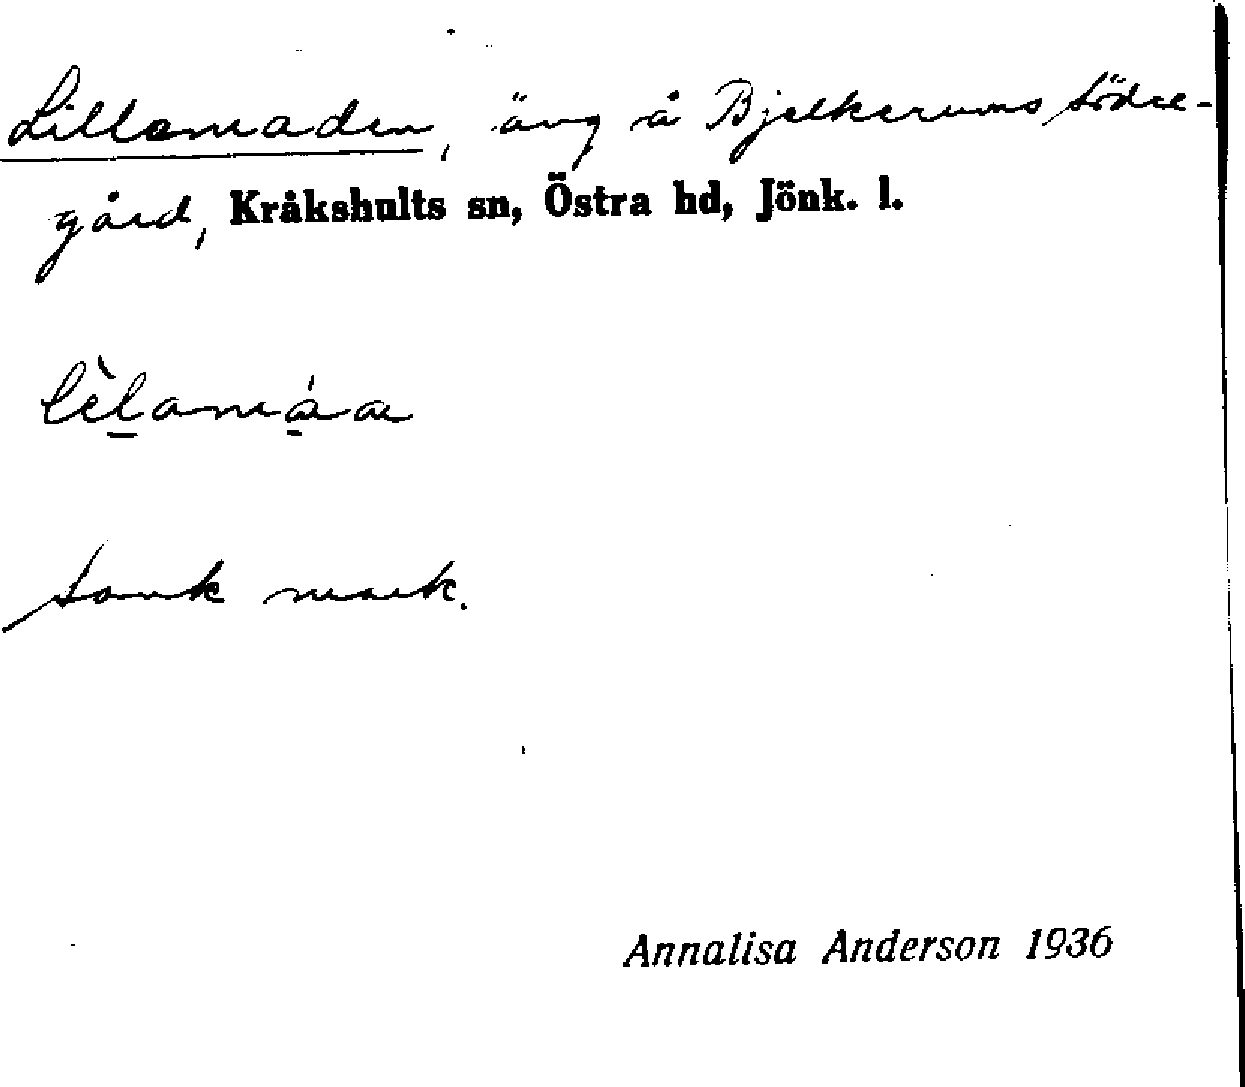 Lillamaden, äng å Bjelkerums södre-
gård, Kråkshults sn, Östra hd, Jönk. l.
lìlamáa
sank mark.
Annalisa Anderson 1936